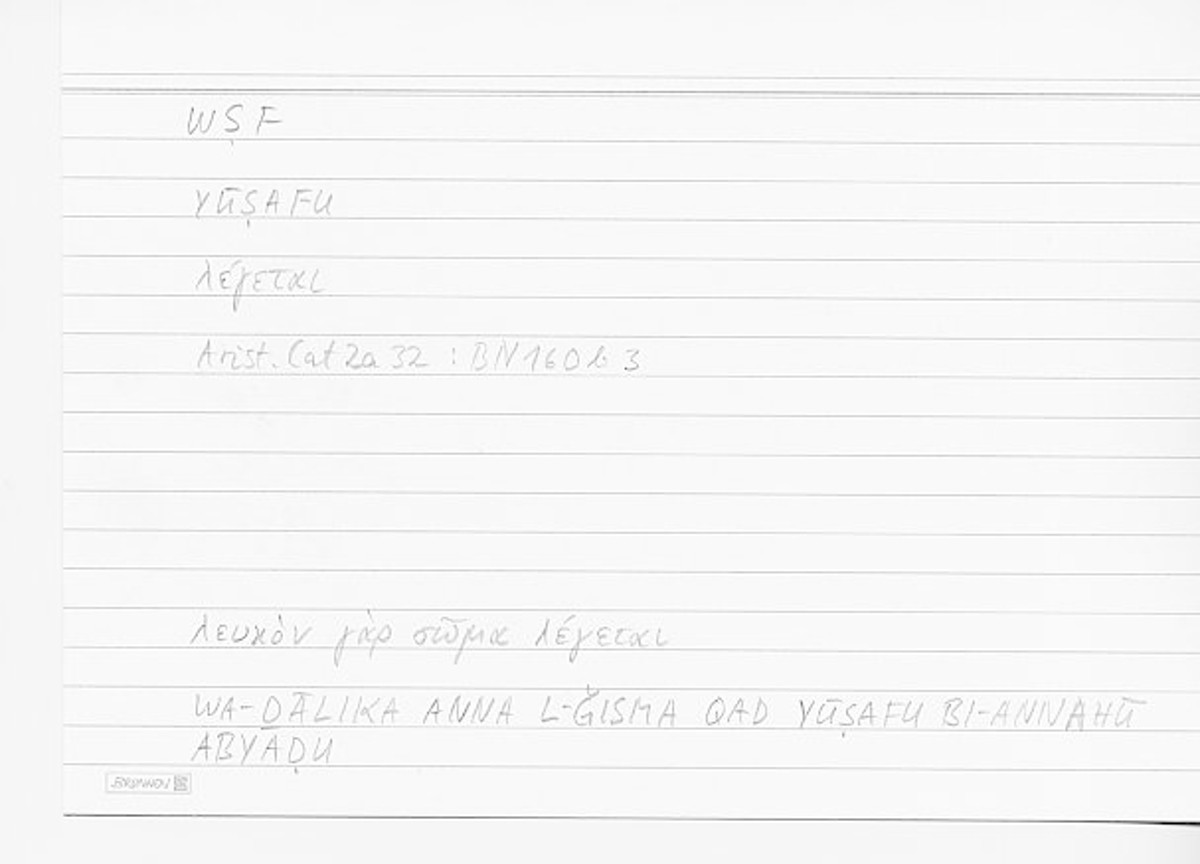 WṢF
YŪṢAFU
λέγεται
Arist. Cat 2a 32 : BN 160 b 3
λευκὸν γὰρ σῶμα λέγεται
WA-ḎĀLIKA ANNA L-ǦISMA QAD YŪṢAFU BI-ANNAHŪ
ABYAḌU
BRUNNEN